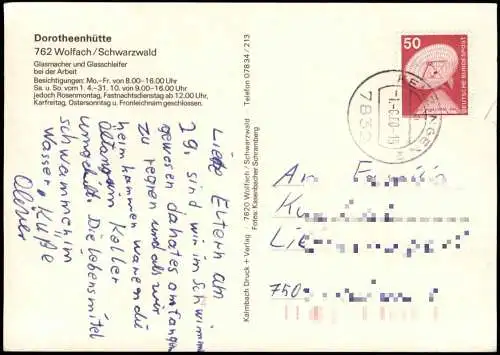 Dorotheenhütte
762 Wolfach/Schwarzwald
Glasmacher und Glasschleifer
bei der Arbeit
Besichtigungen: Mo.-Fr. von 8.00-16.00 Uhr
Sa. u. So. vom 1. 4.-31. 10. von 9.00-16.00 Uhr
jedoch Rosenmontag, Fastnachdienstag ab 12.00 Uhr,
Karfreitag, Ostersonntag u. Fronleichnam geschlossen.
Telefon 07834/213
Kalmbach Druck + Verlag · 7620 Wolfach/Schwarzwald
Fotos: Kasenbacher Schramberg
50
DEUTSCHE BUNDESPOST
Liebe Eltern am
29. sind wir im Schwimm
gewesen da hat es angefangen
zu regnen und als wir
heim kammen waren die
im Keller
umgekippt. Die Lebensmittel
schwammen im
Wasser. Küße
Oliver
An F
Ku
Lie
750